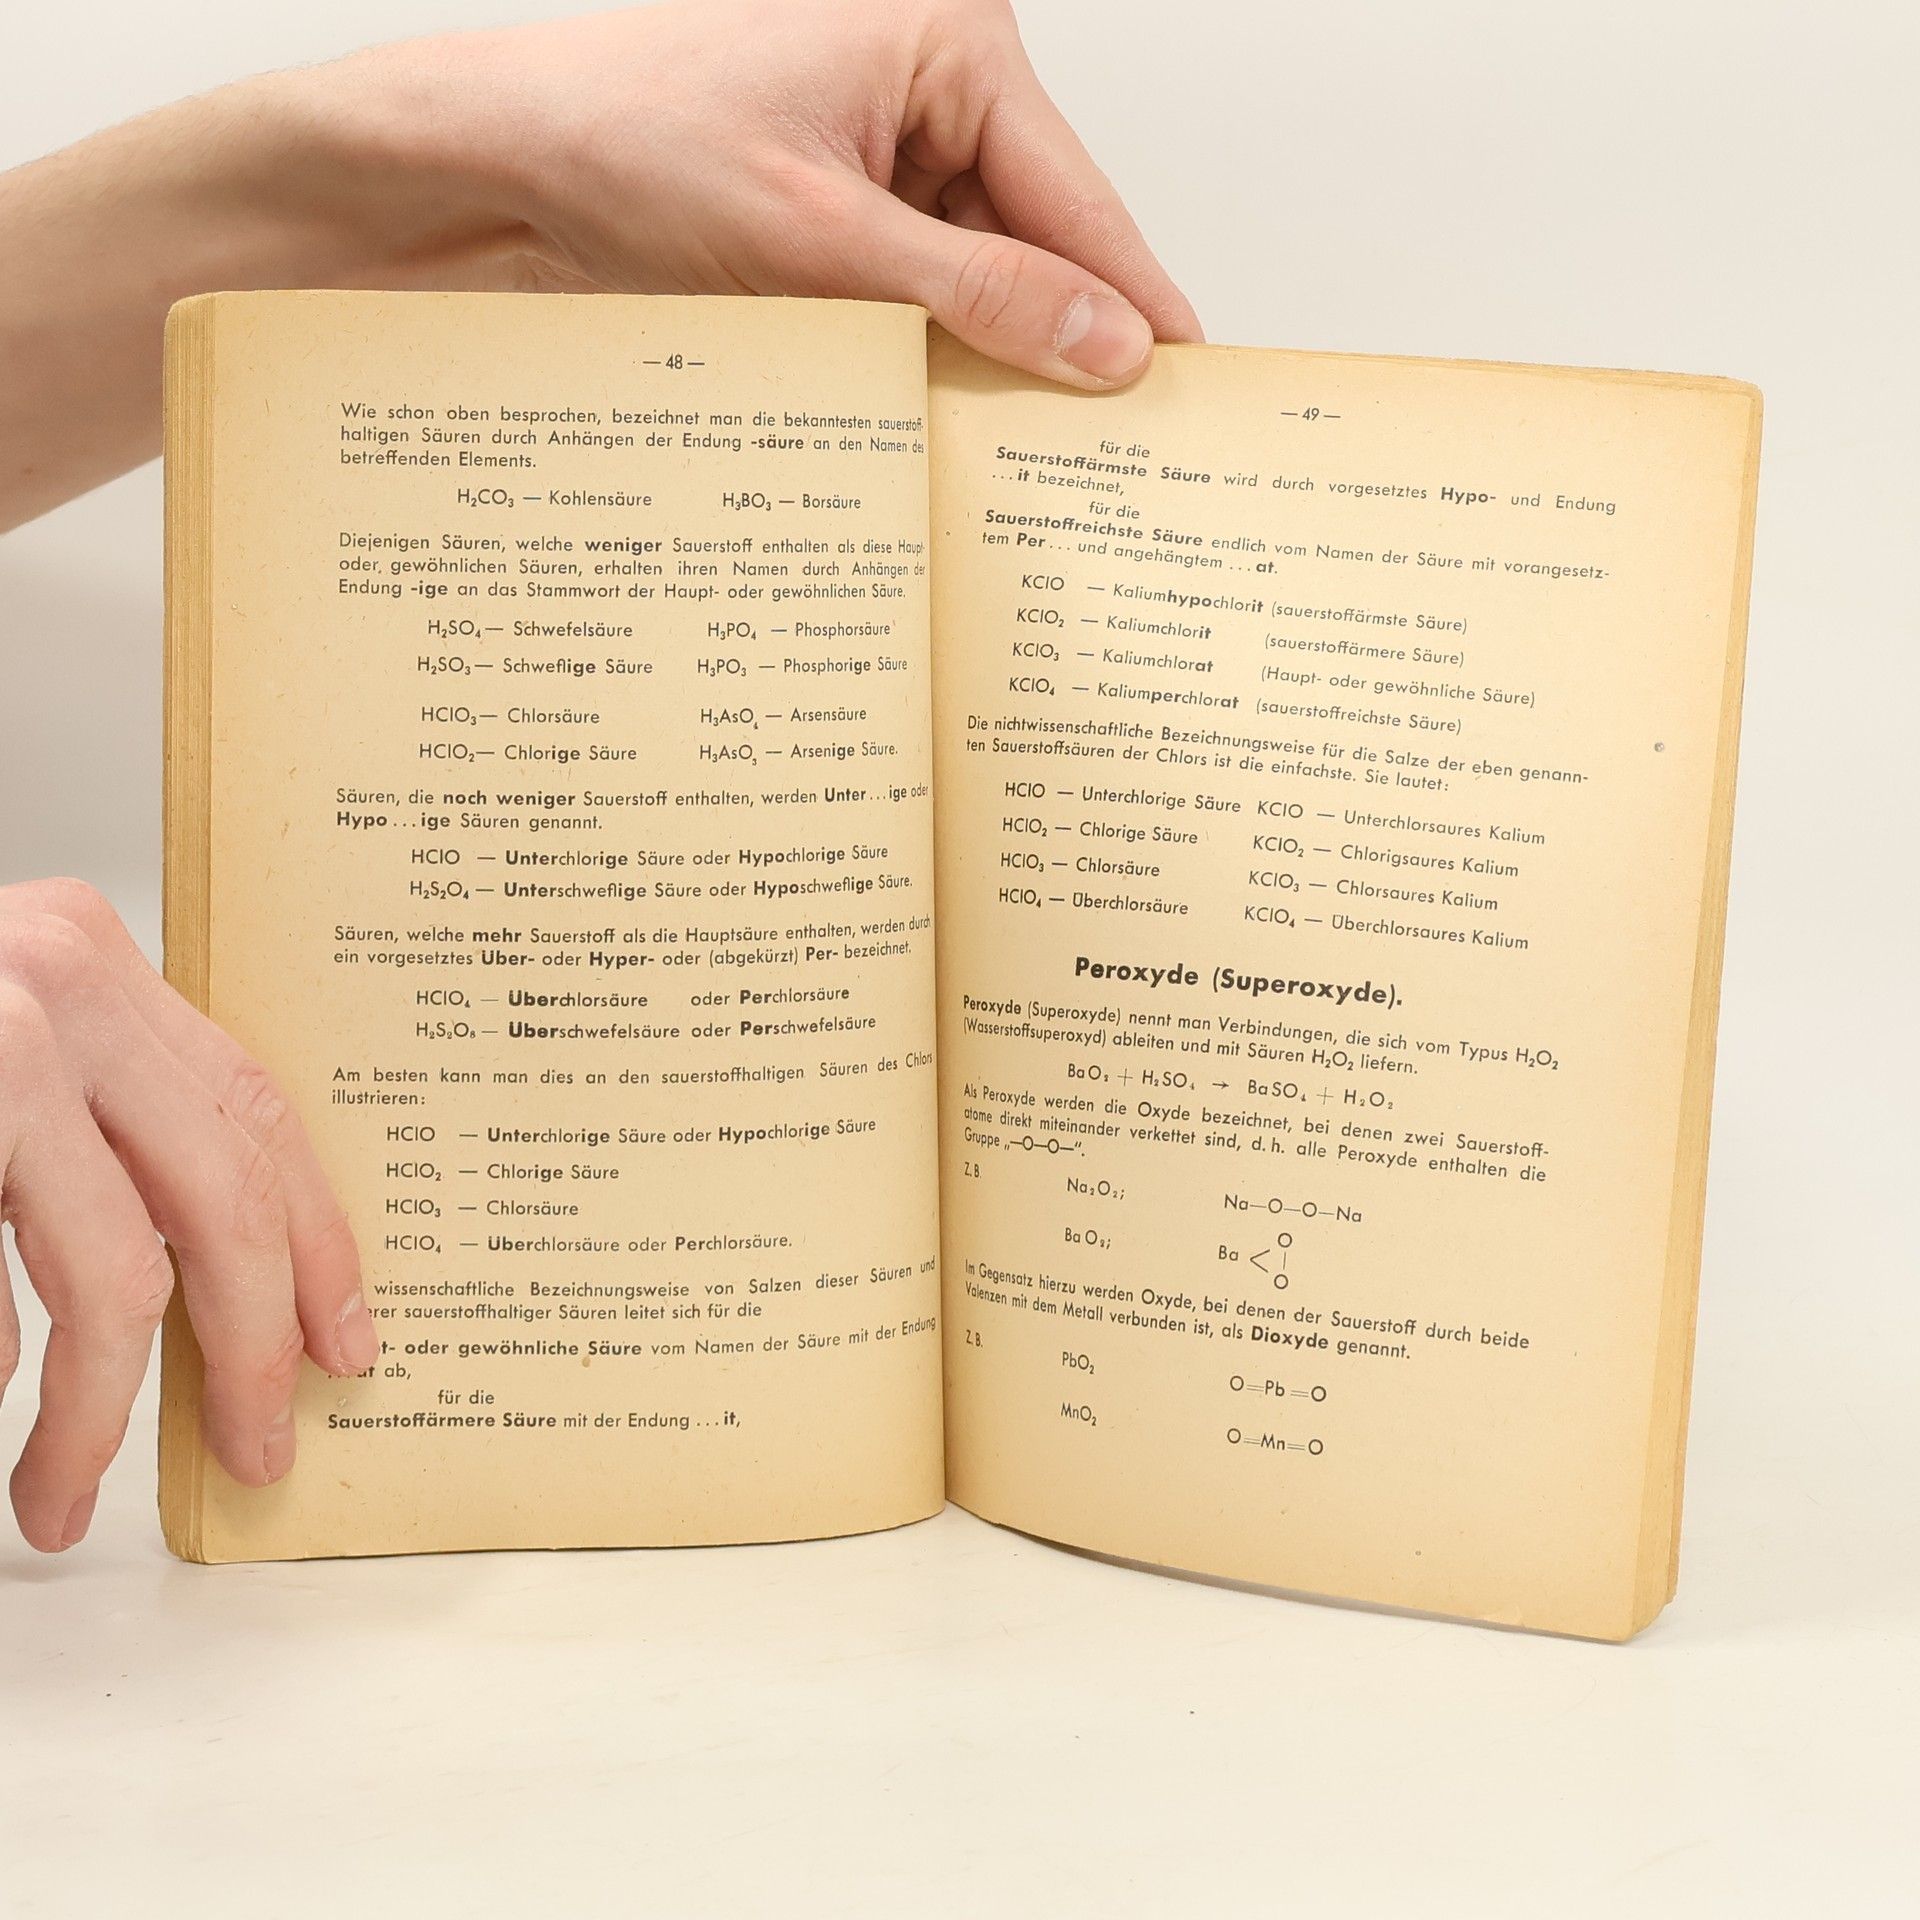 — 48 —
Wie schon oben besprochen, bezeichnet man die bekanntesten sauerstoff-
haltigen Säuren durch Anhängen der Endung -säure an den Namen des
betreffenden Elements.
H₂CO₃ — Kohlensäure H₃BO₃ — Borsäure
Diejenigen Säuren, welche weniger Sauerstoff enthalten als diese Haupt-
oder gewöhnlichen Säuren, erhalten ihren Namen durch Anhängen der
Endung -ige an das Stammwort der Haupt- oder gewöhnlichen Säure.
H₂SO₄ — Schwefelsäure H₃PO₄ — Phosphorsäure
H₂SO₃ — Schweflige Säure H₃PO₃ — Phosphorige Säure
HClO₃ — Chlorsäure H₃AsO₄ — Arsensäure
HClO₂ — Chlorige Säure H₃AsO₃ — Arsenige Säure.
Säuren, die noch weniger Sauerstoff enthalten, werden Unter...ige oder
Hypo...ige Säuren genannt.
HClO — Unterchlorige Säure oder Hypochlorige Säure
H₂S₂O₄ — Unterschweflige Säure oder Hyposchweflige Säure.
Säuren, welche mehr Sauerstoff als die Hauptsäure enthalten, werden durch
ein vorgesetztes Über- oder Hyper- oder (abgekürzt) Per- bezeichnet.
HClO₄ — Überchlorsäure oder Perchlorsäure
H₂S₂O₈ — Überschwefelsäure oder Perschwefelsäure
Am besten kann man dies an den sauerstoffhaltigen Säuren des Chlors
illustrieren:
HClO — Unterchlorige Säure oder Hypochlorige Säure
HClO₂ — Chlorige Säure
HClO₃ — Chlorsäure
HClO₄ — Überchlorsäure oder Perchlorsäure.
wissenschaftliche Bezeichnungsweise von Salzen dieser Säuren und
erer sauerstoffhaltiger Säuren leitet sich für die
t- oder gewöhnliche Säure vom Namen der Säure mit der Endung
...at ab,
für die
Sauerstoffärmere Säure mit der Endung ...it,
— 49 —
für die
Sauerstoffärmste Säure wird durch vorgesetztes Hypo- und Endung
...it bezeichnet,
für die
Sauerstoffreichste Säure endlich vom Namen der Säure mit vorangesetz-
tem Per... und angehängtem ...at.
KClO — Kaliumhypochlorit (sauerstoffärmste Säure)
KClO₂ — Kaliumchlorit (sauerstoffärmere Säure)
KClO₃ — Kaliumchlorat (Haupt- oder gewöhnliche Säure)
KClO₄ — Kaliumperchlorat (sauerstoffreichste Säure)
Die nichtwissenschaftliche Bezeichnungsweise für die Salze der eben genann-
ten Sauerstoffsäuren der Chlors ist die einfachste. Sie lautet:
HClO — Unterchlorige Säure KClO — Unterchlorsaures Kalium
HClO₂ — Chlorige Säure KClO₂ — Chlorigsaures Kalium
HClO₃ — Chlorsäure KClO₃ — Chlorsaures Kalium
HClO₄ — Überchlorsäure KClO₄ — Überchlorsaures Kalium
Peroxyde (Superoxyde).
Peroxyde (Superoxyde) nennt man Verbindungen, die sich vom Typus H₂O₂
(Wasserstoffsuperoxyd) ableiten und mit Säuren H₂O₂ liefern.
BaO₂ + H₂SO₄ → BaSO₄ + H₂O₂
Als Peroxyde werden die Oxyde bezeichnet, bei denen zwei Sauerstoff-
atome direkt miteinander verkettet sind, d. h. alle Peroxyde enthalten die
Gruppe „—O—O—".
Z. B.
Na₂O₂; Na—O—O—Na
O
BaO₂; Ba < |
O
Im Gegensatz hierzu werden Oxyde, bei denen der Sauerstoff durch beide
Valenzen mit dem Metall verbunden ist, als Dioxyde genannt.
Z. B.
PbO₂ O=Pb=O
MnO₂ O=Mn=O